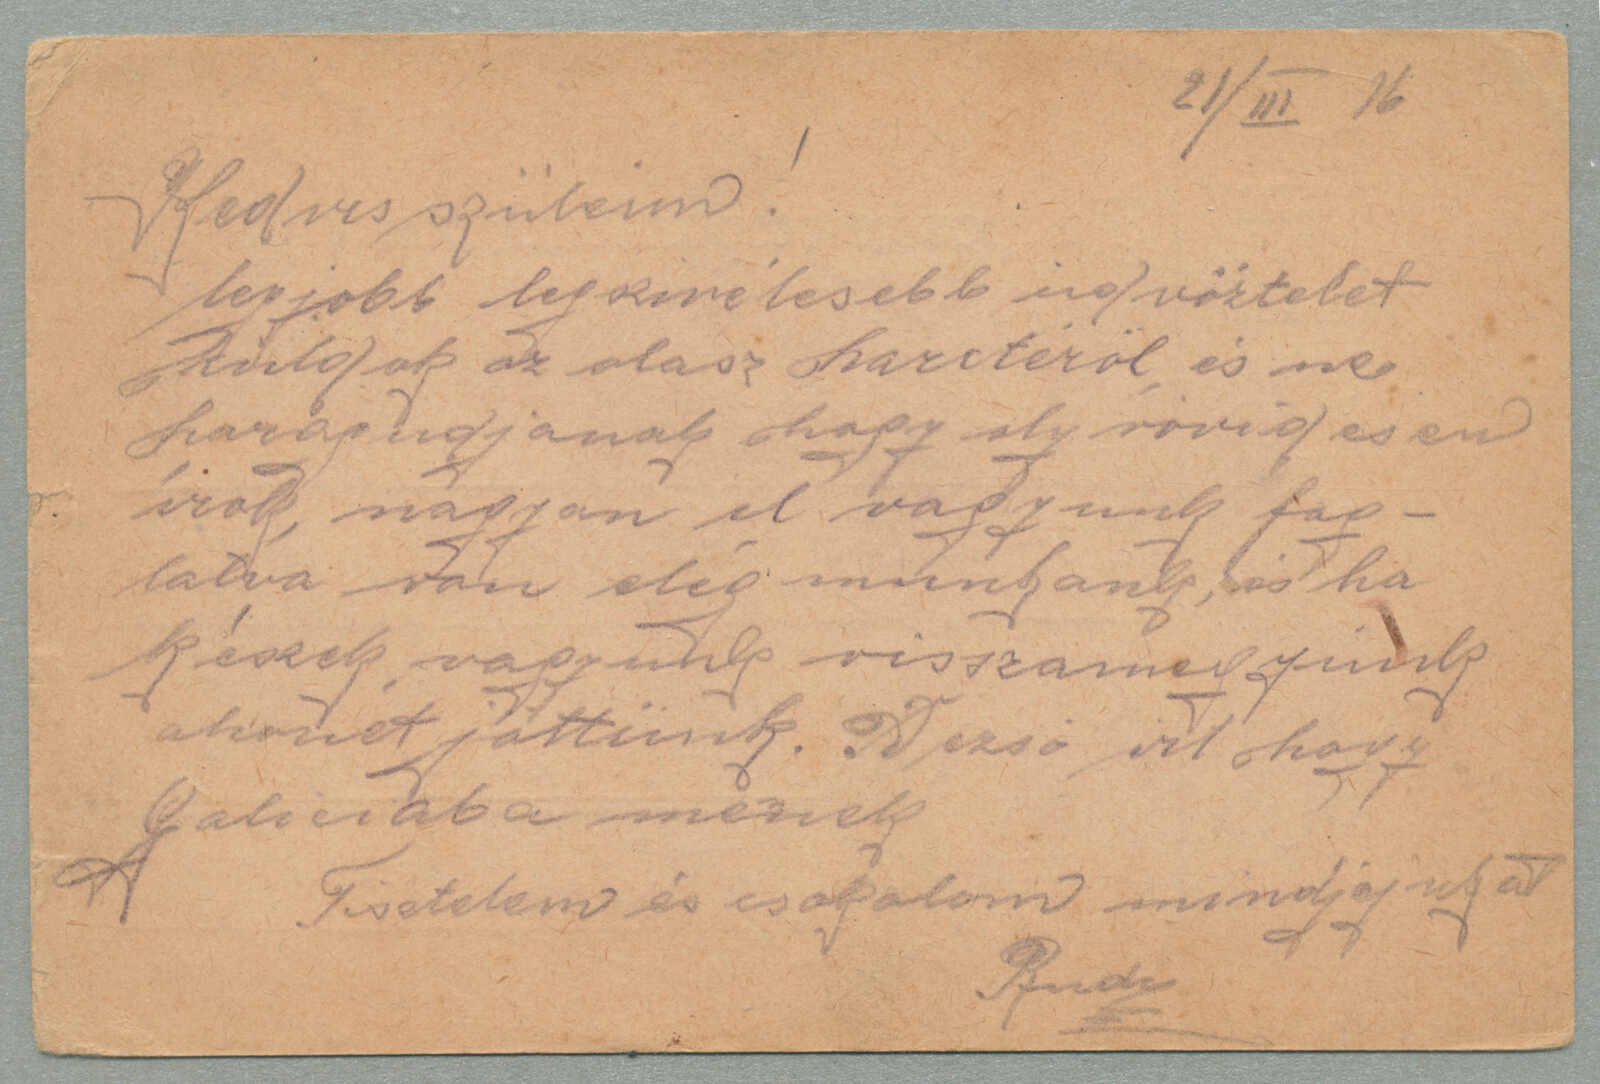 21/III 16
Kedves szüleim!
legjobb legszivélesebb üdvöztelet
küldok az olasz harctéröl, és ne
haragudjanak hogy oly rövidesen
írok, nagyon el vagyunk fog-
latva van elég munkank, és ha
készek vagyunk visszamegyünk
ahonét jöttünk. Dezsö irt hogy
Galiciaba mennek
Tisetelem és csokolom mindjájukat
Rudi